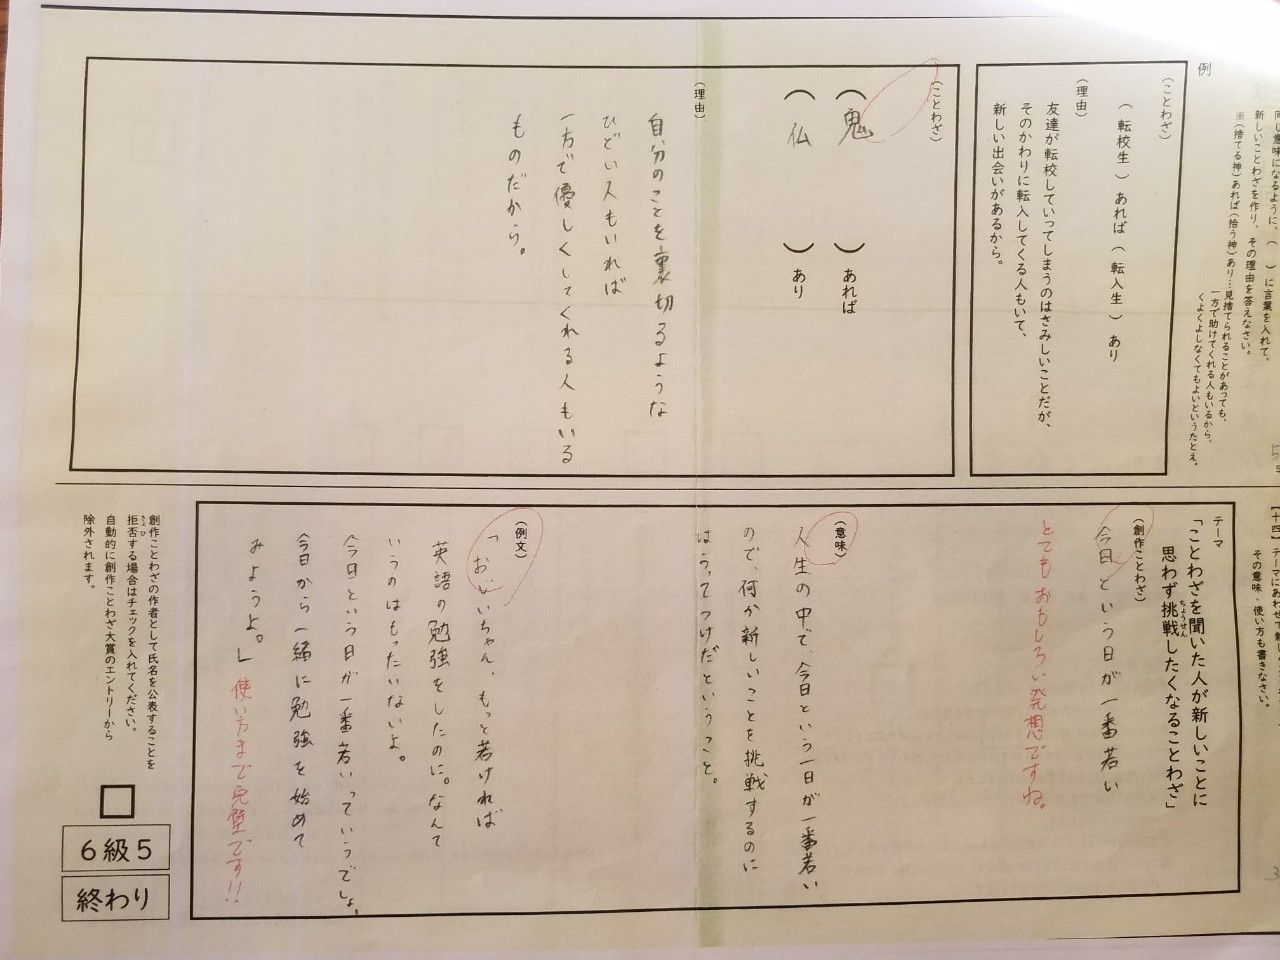 例
同じ意味になるように、（　）に言葉を入れて、
新しいことわざを作り、その理由を答えなさい。
※（捨てる神）あれば（拾う神）あり…見捨てられることがあっても、
一方で助けてくれる人もいるから、
くよくよしなくてもよいというたとえ。
（ことわざ）
（転校生）あれば（転入生）あり
（理由）
友達が転校していってしまうのはさみしいことだが、
そのかわりに転入してくる人もいて、
新しい出会いがあるから。
（ことわざ）
（鬼）あれば
（仏）あり
（理由）
自分のことを裏切るような
ひどい人もいれば
一方で優しくしてくれる人もいる
ものだから。
【十四】テーマにあわせて新し
その意味・使い方も書きなさい。
テーマ
「ことわざを聞いた人が新しいことに
思わず挑戦したくなることわざ」
ちょうせん
（創作ことわざ）
今日という日が一番若い
とてもおもしろい発想ですね。
（意味）
人生の中で、今日という一日が一番若い
ので、何か新しいことを挑戦するのに
はうってつけだということ。
（例文）
「おじいちゃん、もっと若ければ
英語の勉強をしたのに。なんて
いうのはもったいないよ。
今日という日が一番若いっていうでしょ。
今日から一緒に勉強を始めて
みようよ。」
使い方まで完璧です!!
創作ことわざの作者として氏名を公表することを
拒否する場合はチェックを入れてください。
きょひ
自動的に創作ことわざ大賞のエントリーから
除外されます。
６級５
終わり